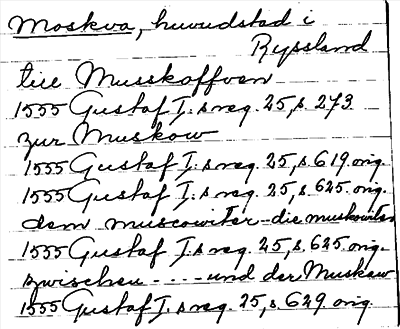 Moskva, huvudstad i
Ryssland
till Musskoffven
1555 Gustaf I:s reg. 25, s. 273
zur Muskow
1555 Gustaf I:s reg. 25, s. 619. orig.
1555 Gustaf I:s reg. 25, s. 625. orig.
dem muscowiter - die muskowiter
1555 Gustaf I:s reg. 25, s. 625. orig.
zwischen - - - - und der Muskaw
1555 Gustaf I:s reg. 25, s. 629. orig.